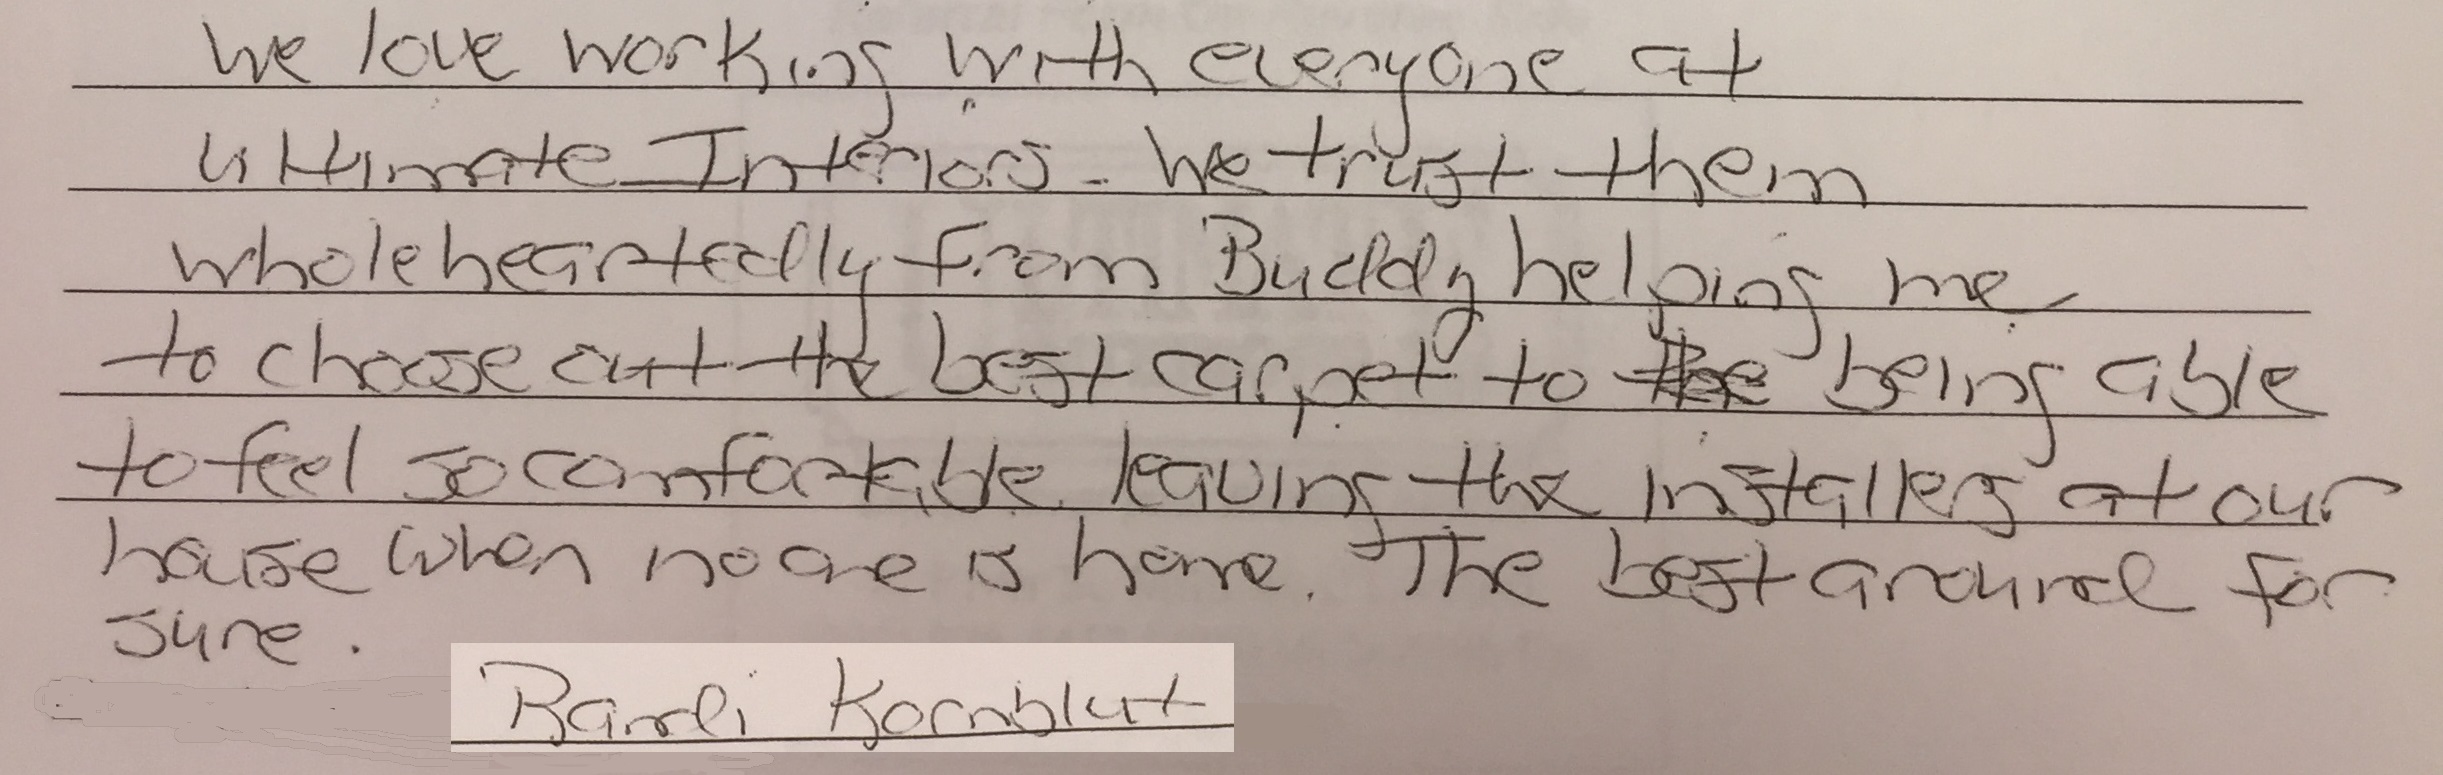 We love working with everyone at
Ultimate Interiors. We trust them
wholeheartedly from Buddy helping me
to choose out the best carpet to the being able
to feel so comfortable leaving the installers at our
house when no one is home. The best around for
sure.
Randi Kornblut